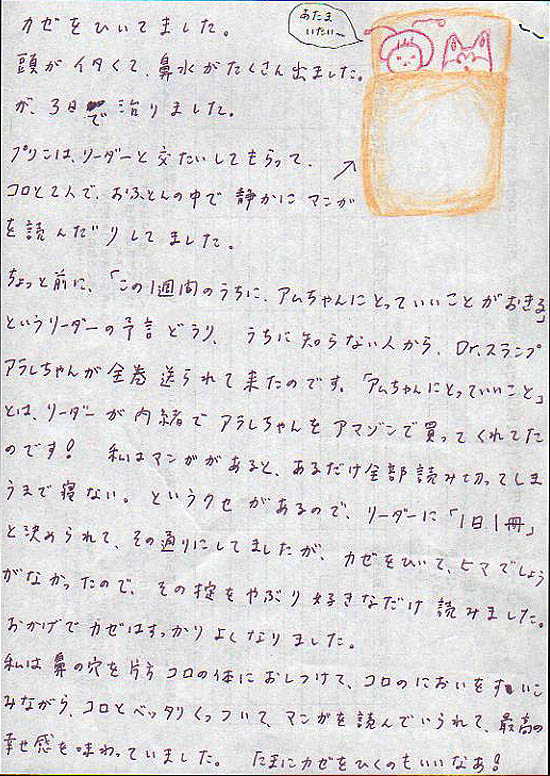 あたま
いたいー
カゼをひいてました。
頭がイタくて、鼻水がたくさん出ました。
が、3日で治りました。
プリンは、リーダーと交たいしてもらって、
コロと2人で、おふとんの中で静かにマンガ
を読んだりしてました。
ちょっと前に、「この1週間のうちに、アムちゃんにとっていいことがおきる」
というリーダーの予言どうり、うちに知らない人から、Dr.スランプ
アラレちゃんが全巻送られて来たのです。「アムちゃんにとっていいこと」
とは、リーダーが内緒でアラレちゃんをアマゾンで買ってくれてた
のです! 私はマンガがあると、あるだけ全部読み切ってしま
うまで寝ない。というクセがあるので、リーダーに「1日1冊」
と決められて、その通りにしてましたが、カゼをひいて、ヒマでしょう
がなかったので、その掟をやぶり好きなだけ読みました。
おかげでカゼはすっかりよくなりました。
私は鼻の穴を片方コロの体におしつけて、コロのにおいをすいこ
みながら、コロとベッタリくっついて、マンガを読んでいられて、最高の
幸せ感を味わっていました。 たまにカゼをひくのもいいなあ!